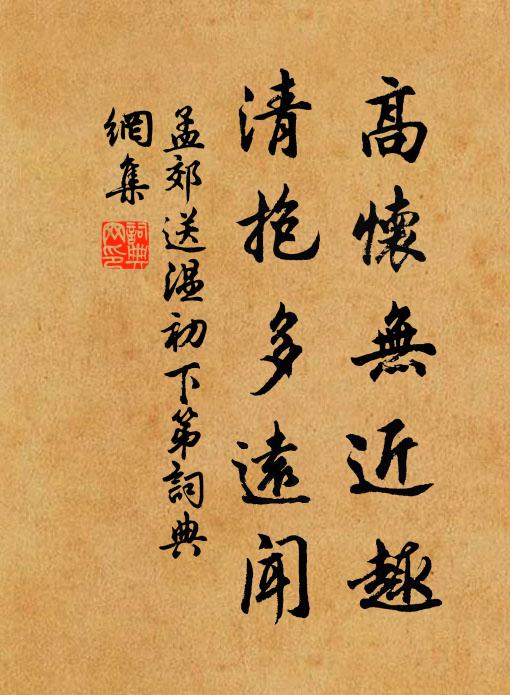 高懷無近趣
清抱多遠聞
孟郊送温初下第詞典
網集
詞典
网印